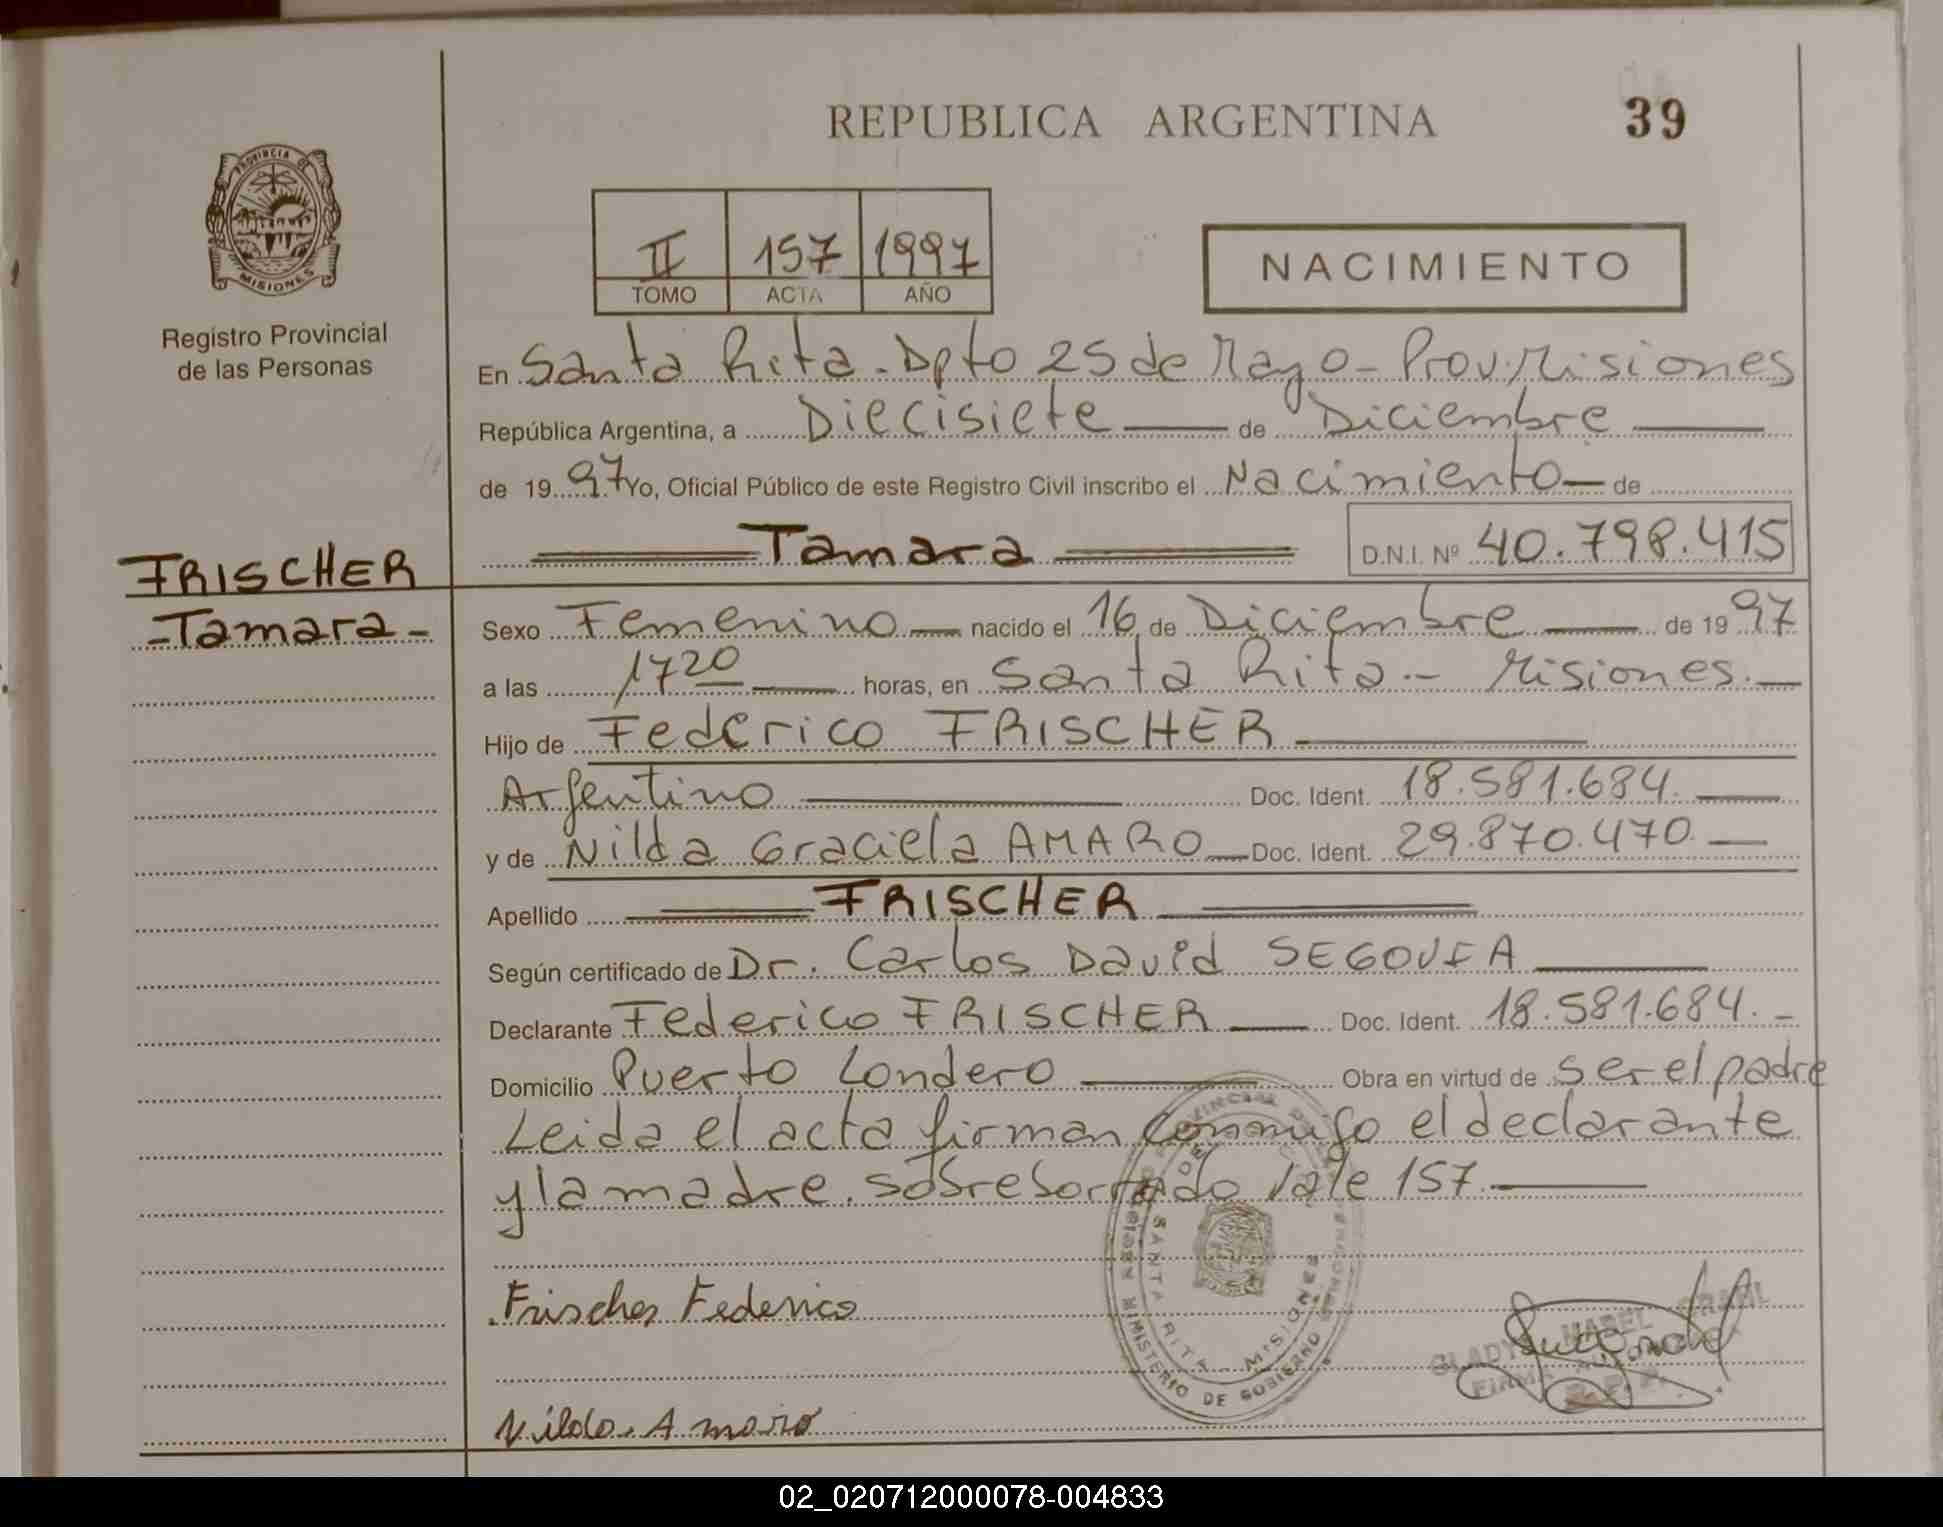 REPUBLICA ARGENTINA
39
PROVINCIA DE
MISIONES
Registro Provincial
de las Personas
II 157 1997
TOMO ACTA AÑO
NACIMIENTO
En Santa Rita - Dpto 25 de Mayo - Prov. Misiones
República Argentina, a Diecisiete de Diciembre
de 1997 Yo, Oficial Público de este Registro Civil inscribo el Nacimiento de
Tamara D.N.I. Nº 40.798.415
FRISCHER
-Tamara-
Sexo Femenino nacido el 16 de Diciembre de 1997
a las 1720 horas, en Santa Rita.- Misiones.-
Hijo de Federico FRISCHER
Argentino Doc. Ident. 18.581.684.
y de Nilda Graciela AMARO Doc. Ident. 29.870.470.
Apellido FRISCHER
Según certificado de Dr. Carlos David SEGOVIA
Declarante Federico FRISCHER Doc. Ident. 18.581.684.-
Domicilio Puerto Londero Obra en virtud de ser el padre
Leida el acta firman conmigo el declarante
y la madre. sobreborrado Vale 157.
Frischer Federico
Nilda. Amaro
SANTA RITA - MISIONES
MINISTERIO DE GOBIERNO
GLADYS MABEL
FIRMA
02_020712000078-004833